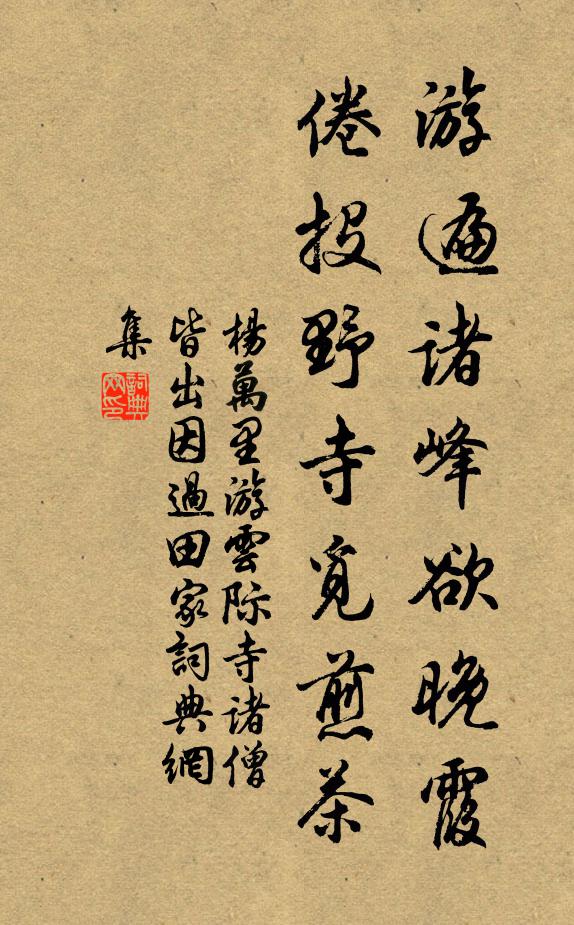 游遍诸峰欲晚霞
倦投野寺觅煎茶
楊萬里游雲际寺诸僧
皆出因過田家詞典網
集
詞典网印